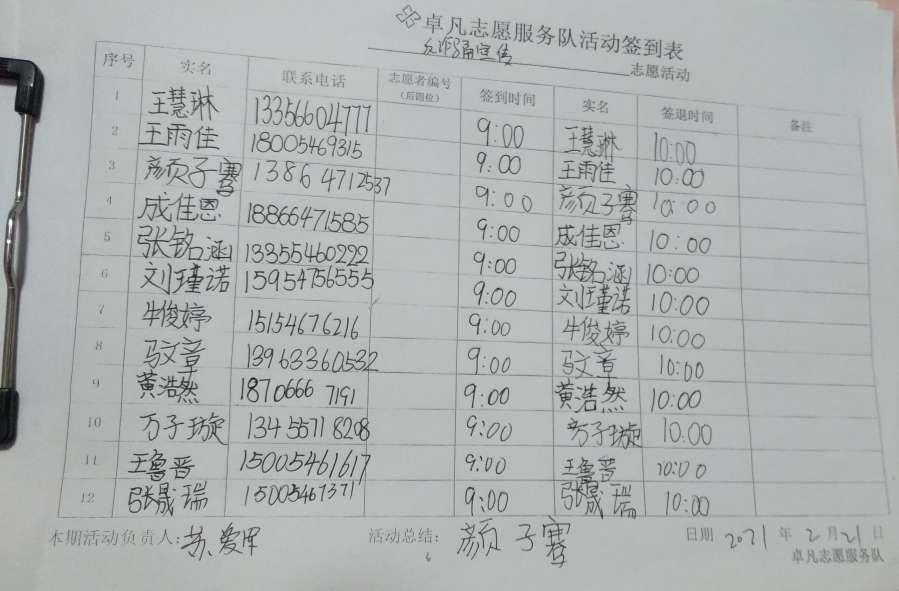 卓凡志愿服务队活动签到表
反诈骗宣传 志愿活动
序号 实名 联系电话 志愿者编号（后四位） 签到时间 实名 签退时间 备注
1 王慧琳 13356604777 9:00 王慧琳 10:00
2 王雨佳 18005469315 9:00 王雨佳 10:00
3 颜子骞 13864712537 9:00 颜子骞 10:00
4 成佳恩 18866471585 9:00 成佳恩 10:00
5 张铭涵 13355460222 9:00 张铭涵 10:00
6 刘瑾诺 15954756555 9:00 刘瑾诺 10:00
7 牛俊婷 15154676216 9:00 牛俊婷 10:00
8 马文章 13963360532 9:00 马文章 10:00
9 黄浩然 18706667191 9:00 黄浩然 10:00
10 万子璇 13455718208 9:00 万子璇 10:00
11 王鲁晋 15005461617 9:00 王鲁晋 10:00
12 张晟瑞 15005467371 9:00 张晟瑞 10:00
本期活动负责人: 苏爱军 活动总结: 颜子骞 日期 2021 年 2 月 21 日
卓凡志愿服务队